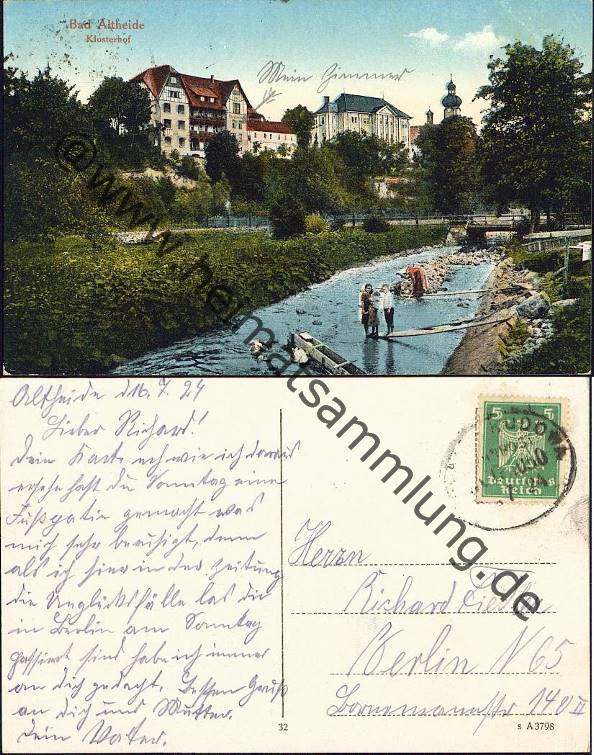 Bad Altheide
Klosterhof
Mein Zimmer
@www.heimatsammlung.de
Altheide d 16.7.24
Lieber Richard!
Dein Karte erh wie ich daraus
ersehe hast du Sonntag eine
Fußpatie gemacht was
mich sehr beruhigt, denn
als ich hier in der Zeitung
die Unglücksfälle las die
in Berlin am Sonntag
passiert sind habe ich immer
an dich gedacht. Besten Gruß
an dich und Mutter.
Dein Vater.
5
5
Deutsches
Reich
KUDOWA
Herrn
Richard
Berlin N 65
14 V II
32
s A 3798